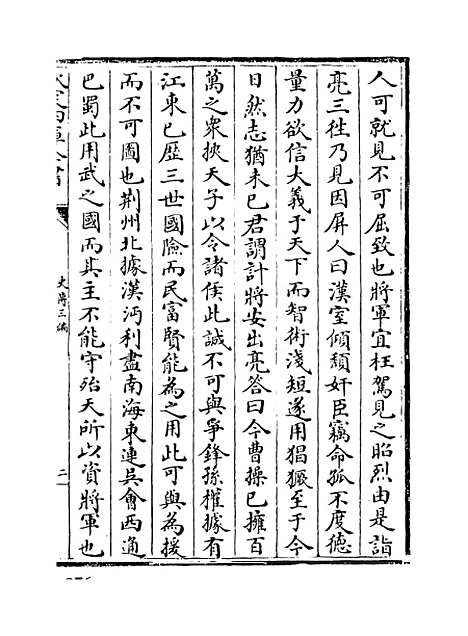 人可就見不可屈致也將軍宜枉駕見之昭烈由是詣
亮三徃乃見因屏人曰漢室傾頽奸臣竊命孤不度德
量力欲信大義于天下而智術淺短遂用猖獗至于今
日然志猶未已君謂計將安出亮答曰今曹操已擁百
萬之衆挾天子以令諸侯此誠不可與爭鋒孫權據有
江東已歷三世國險而民富賢能為之用此可與為援
而不可圖也荆州北據漢沔利盡南海東連吳會西通
巴蜀此用武之國而其主不能守殆天所以資將軍也
史傳三編
二